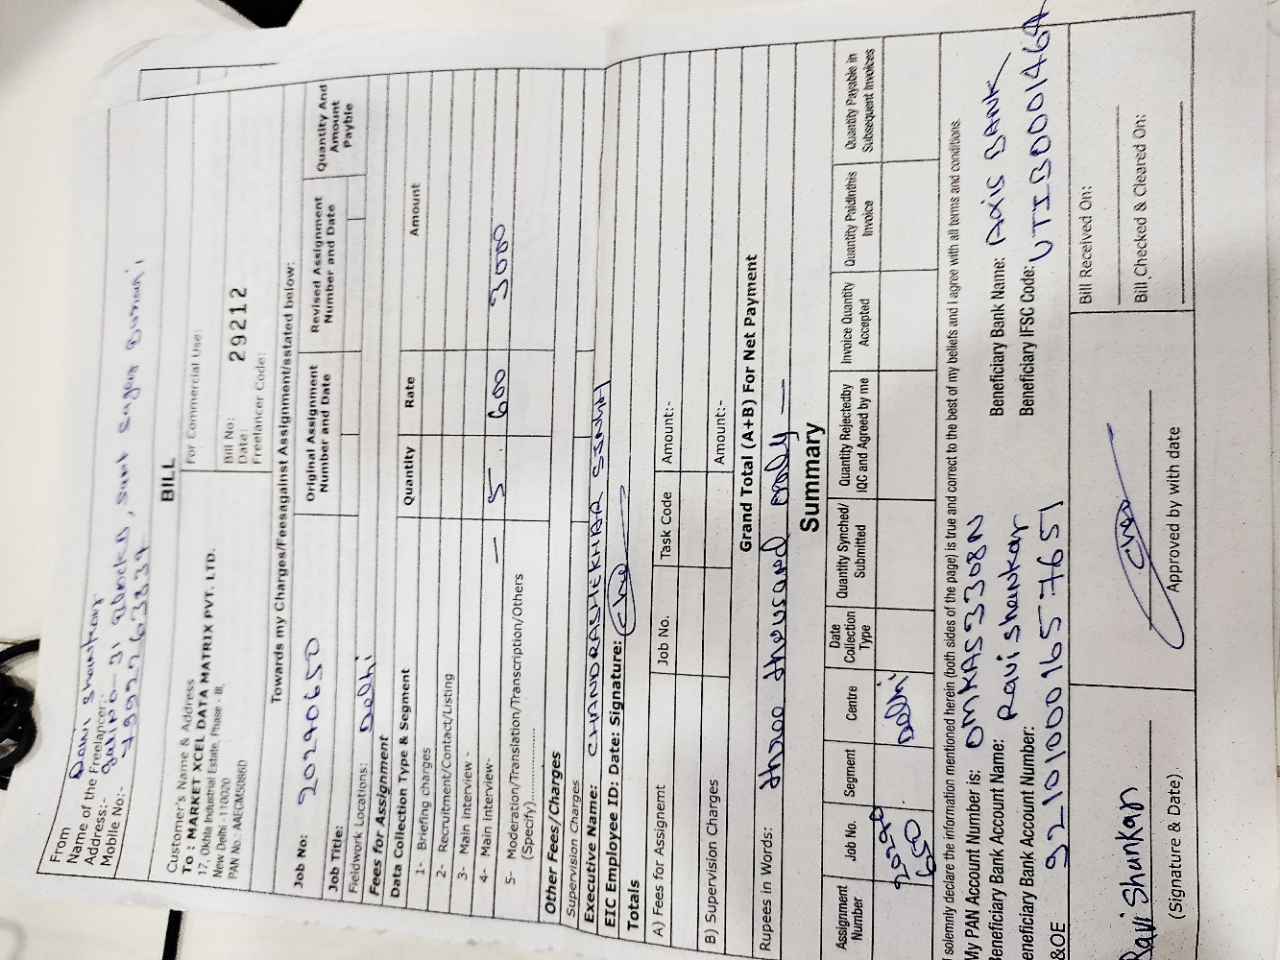 From
Name of the Freelancer:- Ravi Shankar
Address:- Gali NO-31 Block B, Sant
Mobile No:-
BILL
Customer's Name & Address
For Commercial Use:
To : MARKET XCEL DATA MATRIX PVT. LTD.
17, Okhla Industrial Estate, Phase - III,
New Delhi - 110020
PAN No.: AAECM5086D
Bill No: 29212
Date:
Freelancer Code:
Towards my Charges/Feesagainst Assignment/sstated below:
Job No: 20240650
Original Assignment Number and Date
Revised Assignment Number and Date
Quantity And Amount Payble
Job Title:
Fieldwork Locations: Delhi
Fees for Assignment
Data Collection Type & Segment Quantity Rate Amount
1- Briefing charges
2- Recruitment/Contact/Listing
3- Main Interview -
4- Main Interview- — 5 600 3000
5- Moderation/Translation/Transcription/Others
(Specify)..................
Other Fees/Charges
Supervision Charges
Executive Name: CHANDRASHEKHAR SINGH
EIC Employee ID: Date: Signature:
Totals
A) Fees for Assignemt Job No. Task Code Amount:-
B) Supervision Charges Amount:-
Grand Total (A+B) For Net Payment
Rupees in Words: three thousand only —
Summary
Assignment Number
Job No.
Segment
Centre
Date Collection Type
Quantity Synched/ Submitted
Quantity Rejectedby IQC and Agreed by me
Invoice Quantity Accepted
Quantity Paidinthis Invoice
Quantity Payable in Subsequent Invoices
20240 Delhi
650
I solemnly declare the information mentioned herein (both sides of the page) is true and correct to the best of my beliefs and I agree with all terms and conditions.
My PAN Account Number is: Beneficiary Bank Name: Axis BANK
Beneficiary Bank Account Name: Ravi Shankar Beneficiary IFSC Code:
Beneficiary Bank Account Number: 921010001657651
&OE
Ravi Shankar
(Signature & Date)
Approved by with date
Bill Received On:
Bill Checked & Cleared On: